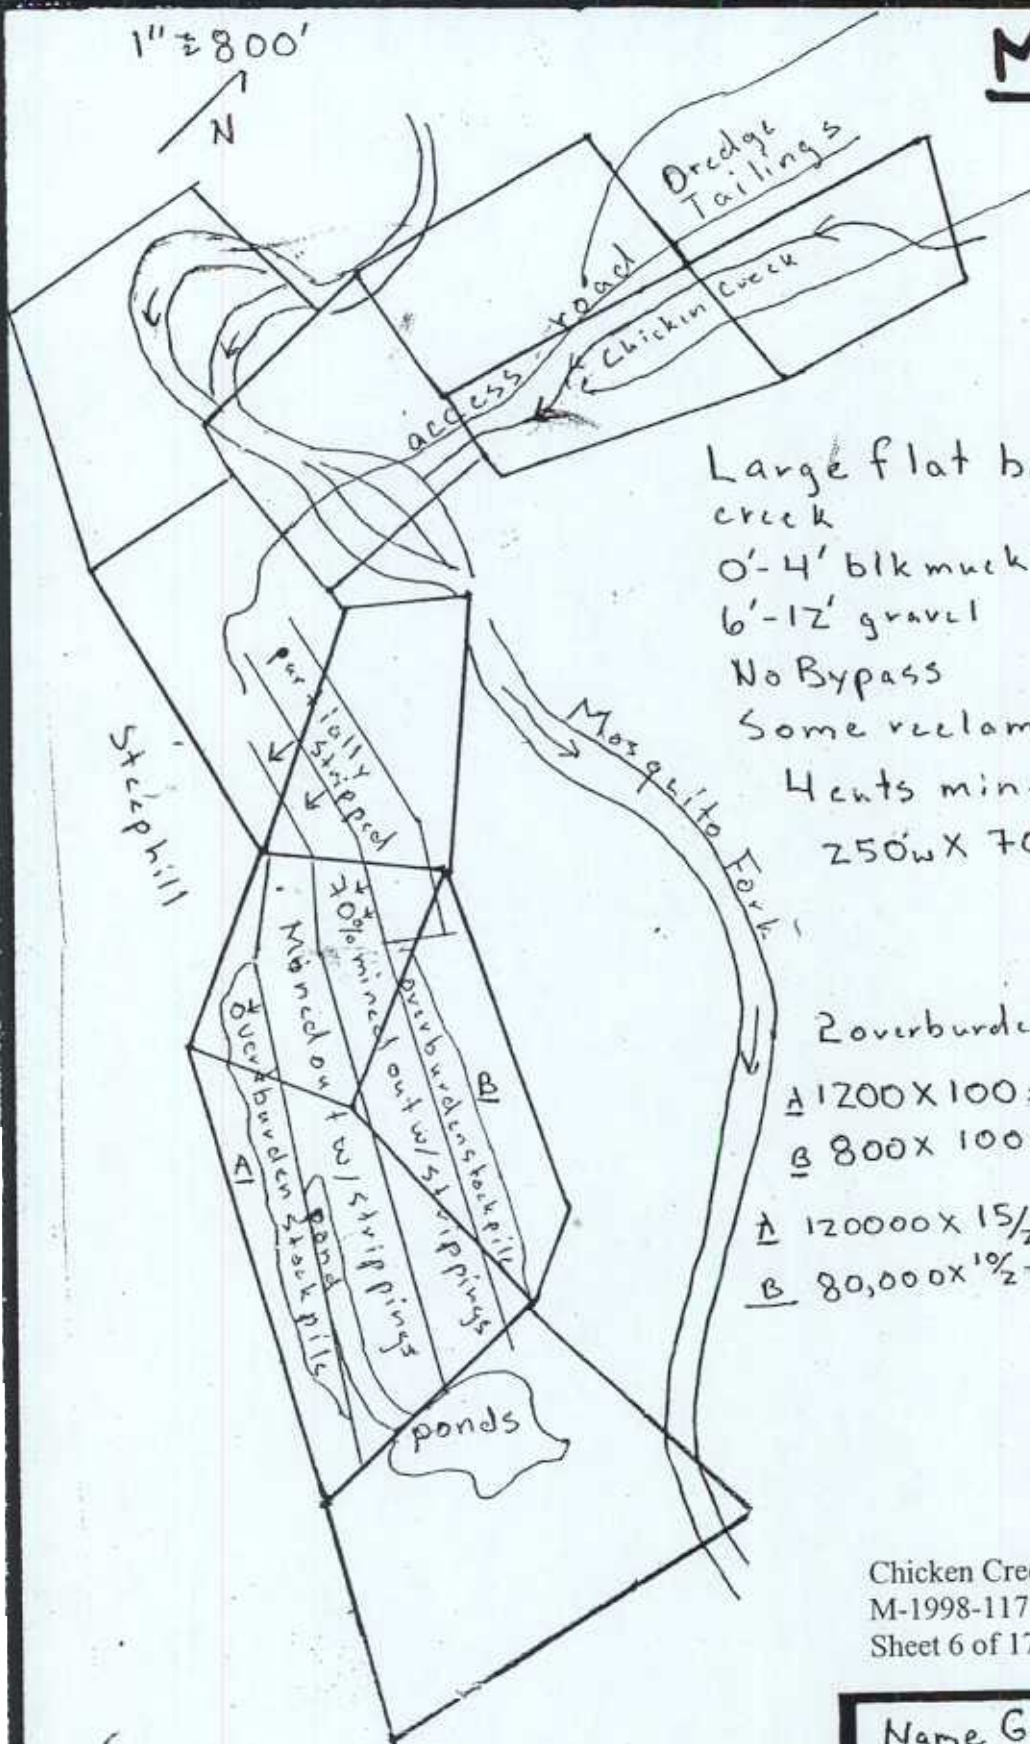 1" ≈ 800'
N
M
Dredge
Tailings
access road
Chickin Creek
Large flat b
creek
0'-4' blk muck
6'-12' gravel
No Bypass
Some reclam
4 cuts min
250'w X 70
Steephill
partially
stripped
Mosquito Fork
Mined out w/ strippings
70% mined out w/ strippings
overburden stockpile
B
overburden stockpile
A
pond
ponds
2 overburde
A 1200 X 100
B 800 X 100
A 120000 X 15/2
B 80,000 X 10/2
Chicken Cree
M-1998-117
Sheet 6 of 17
Name G